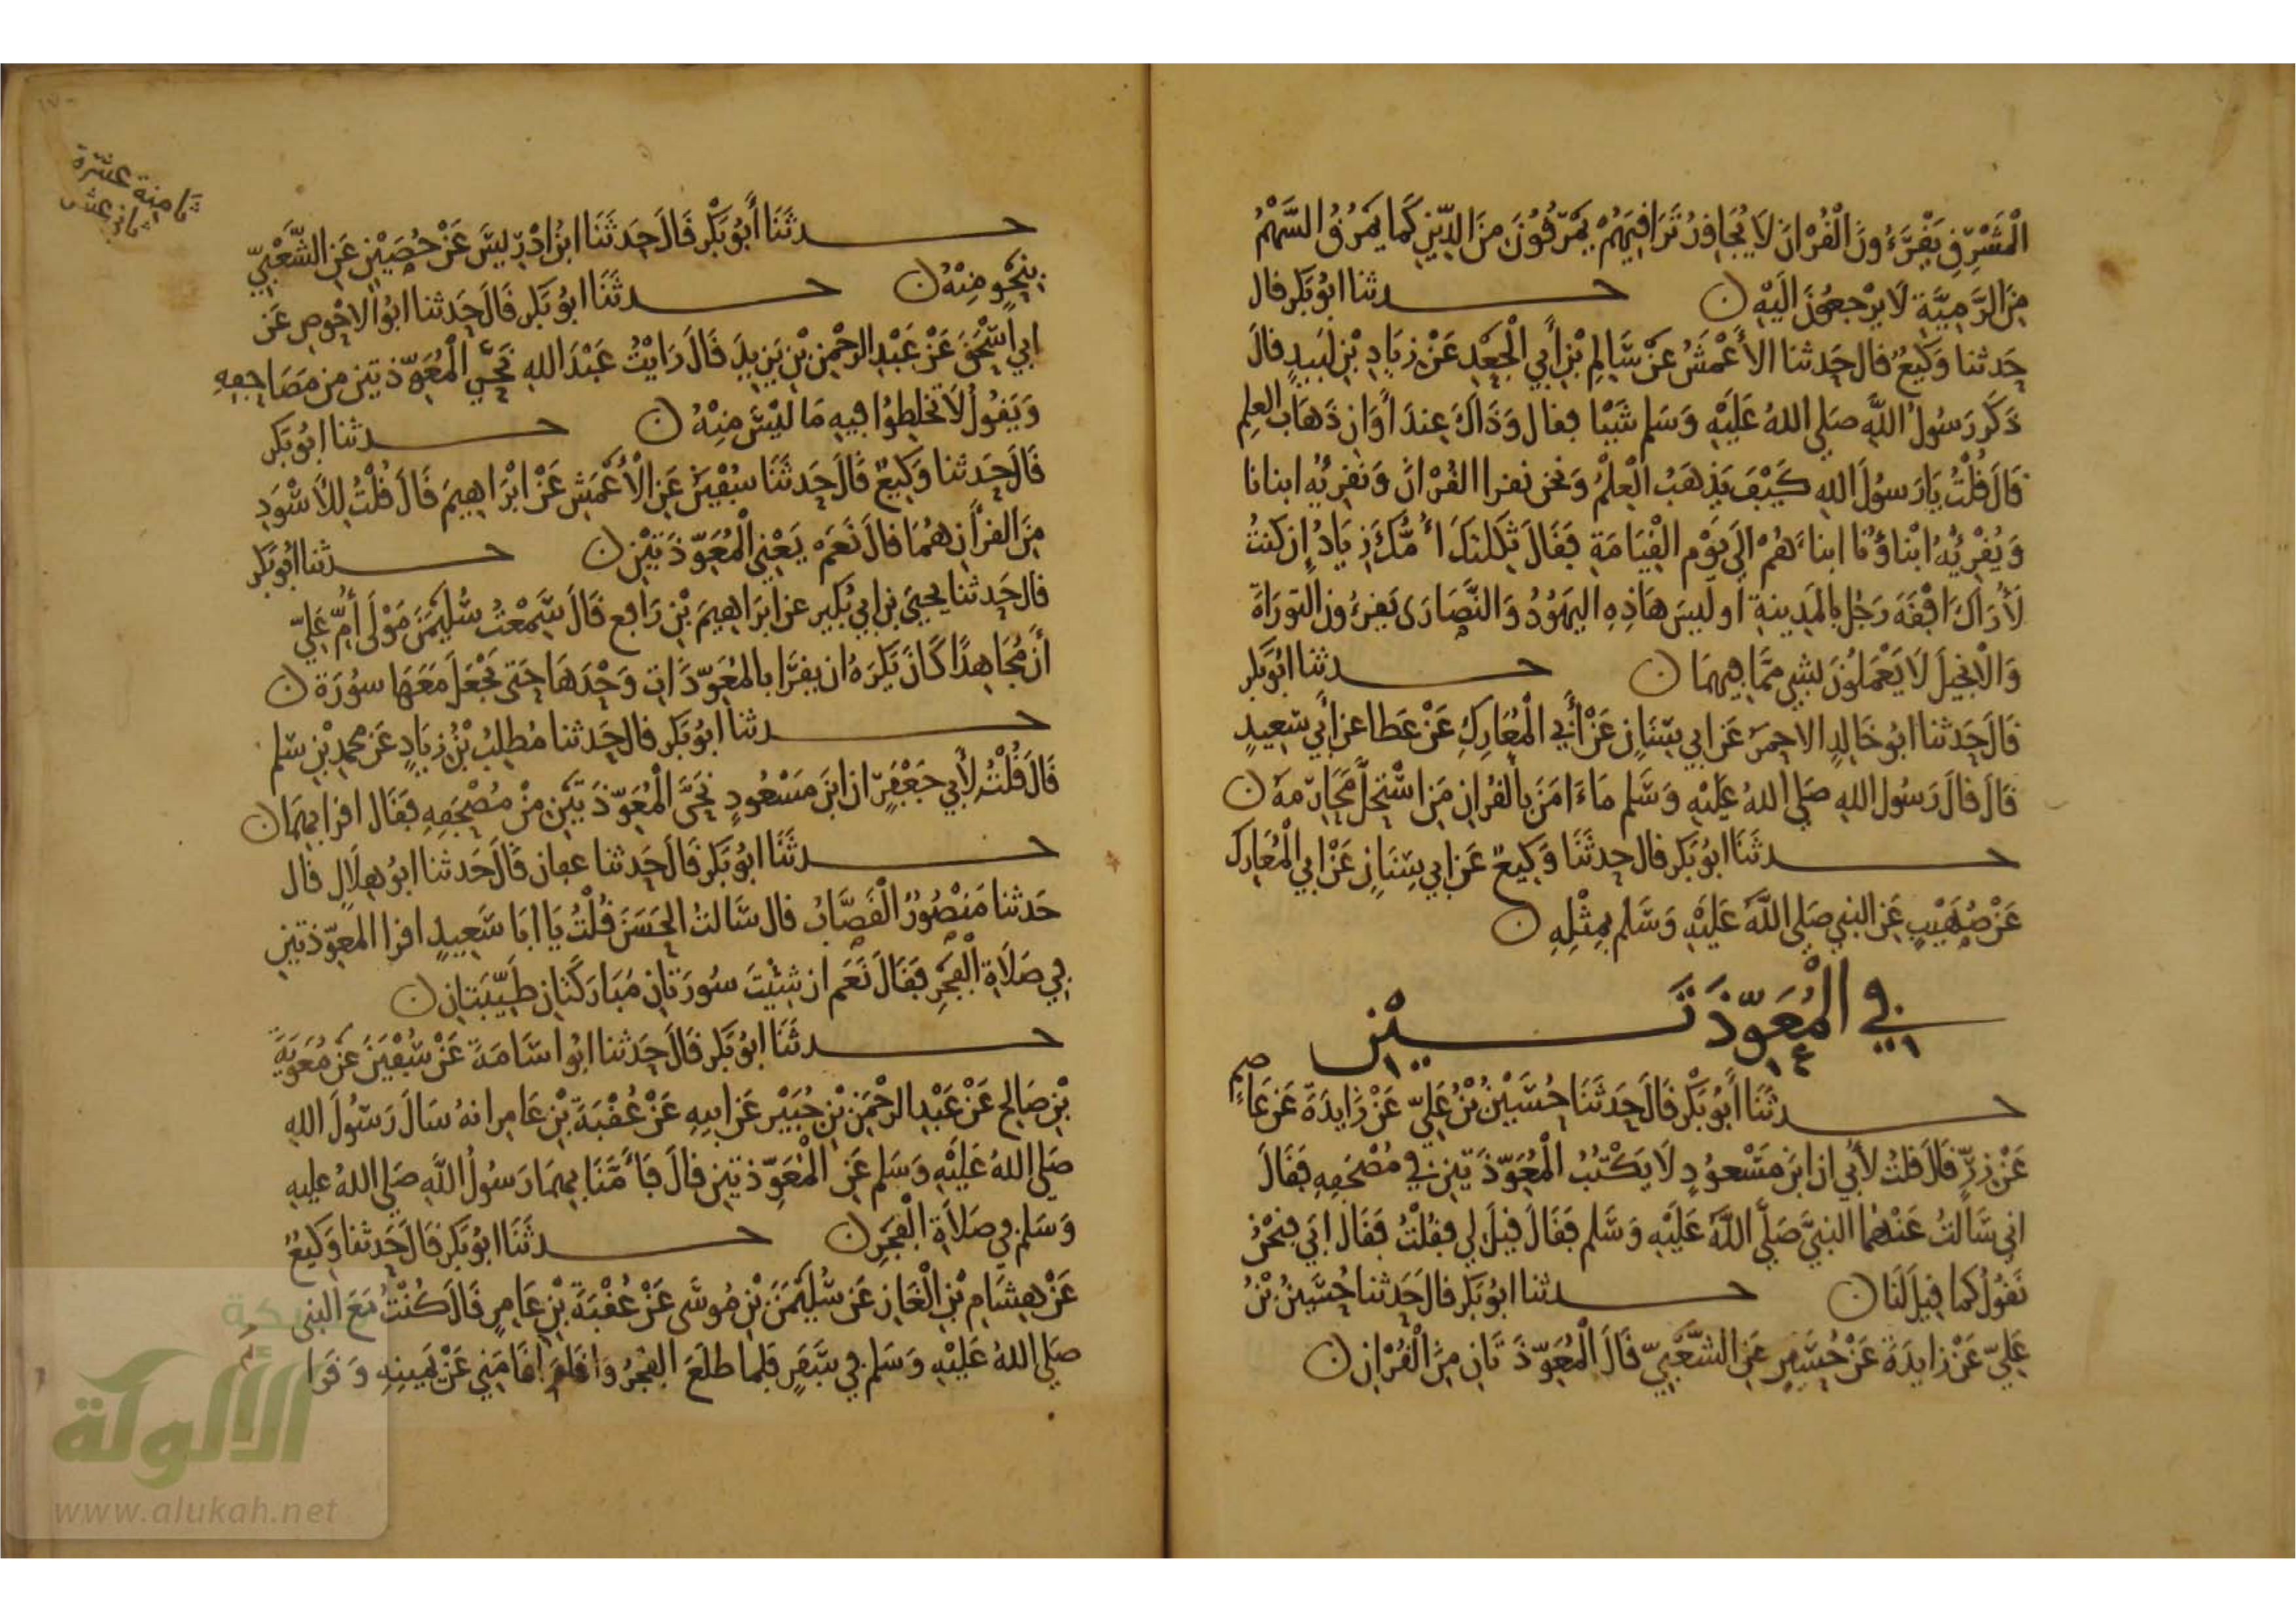 الْمَشْرِقِ يَقْرَءُونَ الْقُرْانَ لَا يُجَاوِزُ تَرَاقِيَهُمْ يَمْرُقُونَ مِنَ الدِّينِ كَمَا يَمْرُقُ السَّهْمُ
مِنَ الرَّمِيَّةِ لَا يَرْجِعُونَ الَيْهِ ن حدثنا ابُو بَكر قال
حَدثنا وَكِيعٌ قال حَدثنا الأَعْمَشُ عَنْ سَالِمِ بْنِ أَبِي الْجَعْدِ عَنْ زِيَادِ بْنِ لَبِيدٍ قالَ
ذَكَرَ رَسُولُ اللَّهِ صَلى اللهُ عَلَيْهِ وَسَلم شَيْا فقال وَذَاكَ عِندَ أَوَانِ ذَهَابِ العِلمِ
قَالَ قُلْتُ يَا رَسولَ اللهِ كَيْفَ يَذهَبُ الْعِلْمُ وَنحن نقرا القُرْانَ وَنقرِئُه ابنانا
وَيُقْرِئُهُ ابْناؤُنا ابناءَهُمْ الَى يَوْمِ الْقِيَامَةِ فَقَالَ ثَكِلتكَ أُمُّكَ زِيَادُ إِن كنتُ
لَأُرَاكَ افْقَهَ رَجُلٍ بِالمَدِينةِ اوليسَ هَاذِهِ اليهُودُ وَالنَّصَارَى يَقرءُونَ التورَاةَ
وَالانجِيلَ لَا يَعْمَلُونَ بشي مِمَّا فِيهمَا ن حدثنا ابُو بَكر
قَالَ حَدثنا ابُو خَالِدٍ الاحمرُ عَن ابي سِنَانٍ عَنْ أَبِي الْمُعَارِكِ عَنْ عَطا عن أَبِي سَعِيدٍ
قَالَ قالَ رَسُول اللهِ صَلى اللهُ عَلَيْهِ وَسَلم مَا ءَامَنَ بِالقُرانِ مَن اسْتَحَلَّ مَحَارِمَهُ ن
حدثَنَا ابُو بَكر قال حدثَنَا وَكِيعٌ عَن ابي سِنَانٍ عَنْ ابي الْمُعَارِك
عَنْ صُهَيْبٍ عَنِ النبي صَلى اللَّهُ عَلَيْهِ وَسَلم بِمِثْلِهِ ن
فِي الْمُعَوِّذَتَيْنِ
حدثَنَا أَبُو بَكْرٍ قَالَ حَدَثَنَا حُسَيْنُ بْنُ عَلِيّ عَنْ زَايِدَةَ عَنْ عَاصِمٍ
عَنْ زِرٍّ قَالَ قلتُ لأُبَي ان ابنَ مَسْعودٍ لَا يَكْتُبُ الْمُعَوِّذَتينِ فِي مُصْحَفِهِ فَقَالَ
اني سَأَلتُ عَنْهُمَا النبيَّ صَلَّى اللَّهُ عَلَيْهِ وَسَلم فَقَالَ قِيلَ لي فقُلْتُ فَقَالَ ابَي فنحْنُ
نَقُولُ كما قِيلَ لَنَا ن حدثنا ابُو بَكر قالَ حَدثنا حُسَيْنُ بْنُ
عَلِيّ عَنْ زايدَةَ عَنْ حُصَيْنٍ عَنِ الشَّعْبِيّ قَالَ الْمُعَوِّذَتَانِ مِنَ الْقُرْانِ ن
ثامنة عشرة
ثمان عشر
حدثَنَا أَبُو بَكْرٍ قَالَ حَدَثَنَا ابْنُ ادْرِيسَ عَنْ حُصَيْنٍ عَنِ الشَّعْبِيّ
بِنَحْوٍ مِنْهُ ن حدثَنَا ابُو بَكر قَالَ حَدثنا ابُو الاحْوصِ عَن
ابِي اسْحَقَ عَنْ عَبْدِ الرحْمنِ بْنِ يَزِيدَ قَالَ رَايْتُ عَبْدَ اللهِ مَحَى الْمُعَوِّذتينِ مِن مَصَاحِفِهِ
وَيَقُولُ لَا تخلِطُوا فِيهِ مَا ليْسَ مِنْهُ ن حدثنا ابُو بَكر
قَالَ حَدثنا وَكِيعٌ قَالَ حَدثَنَا سُفْيَنُ عَنِ الْأَعْمَشِ عَنْ ابْرَاهِيمَ قَالَ قُلْتُ للأَسْوَدِ
مِنَ القرْأَنِ هُمَا قالَ نَعَمْ يَعْنِي الْمُعَوِّذَتَيْنِ ن حدثنا ابُو بَكر
قال حَدثنا يحيَى بن ابي بُكَير عن ابرَاهيمَ بْنِ رَافِعٍ قَالَ سَمعْتُ سُلَيْمَنَ مَوْلَى أُمِّ عَلِيّ
أَنَّ مُجَاهِدًا كَانَ يَكرَهُ ان يقرَا بالمُعَوِّذَاتِ وَحْدَهَا حَتى تجْعَلَ مَعَهَا سُورَة ن
حدثنا ابُو بَكر قالَ حَدثنا مُطلِبُ بْنُ زِيَادٍ عَن محمدِ بْنِ سَالم
قَالَ قُلْتُ لأَبي جَعْفَرٍ ان ابنَ مَسْعُودٍ مَحَى الْمُعَوِّذَتَيْنِ مِنْ مُصْحَفِهِ فَقَالَ اقرا بهِمَا ن
حدثَنَا ابُو بَكر قَالَ حَدثنا عفان قَالَ حَدثنا ابُو هِلَالٍ قال
حَدثنا مَنْصُورٌ الْقَصَّابُ قال سَالتُ الحَسَنَ قُلْتُ يَا ابَا سَعِيدٍ اقرا المعَوِّذتينِ
فِي صَلَاةِ الْفَجْرِ فَقَالَ نَعَم ان شِئْتَ سُورَتَانِ مُبَارَكَتَانِ طَيِّبَتَانِ ن
حدثَنَا ابُو بَكر قَالَ حَدثنا ابُو اسَامَةَ عَنْ سُفْيَنَ عَنْ مُعَوِيَةَ
بْنِ صَالِحٍ عَنْ عَبْدِ الرحْمَنِ بْنِ جُبَيْرٍ عَن ابيهِ عَنْ عُقْبَةَ بْنِ عَامِرٍ انهُ سَالَ رَسُولَ اللهِ
صَلى اللهُ عَلَيْهِ وَسَلم عَنِ الْمُعَوِّذتينِ قالَ فَأَمَّنَا بِهِمَا رَسُولُ اللَّهِ صَلى اللهُ عليهِ
وَسَلم فِي صَلَاةِ الْفَجْرِ ن حدثَنَا ابُو بَكر قَالَ حَدثنا وَكِيعٌ
عَنْ هِشَامِ بْنِ الْغَازِ عَن سُلَيْمَنَ بْنِ مُوسَى عَنْ عُقْبَةَ بْنِ عَامِرٍ قَالَ كُنْتُ مَعَ النبى
صَلى اللهُ عَلَيْهِ وَسَلم فِي سَفَرٍ فلما طلَعَ الفَجْرُ وَاقامَ اقَامَنِي عَنْ يَمِينِهِ وَقَرا
الألوكة
www.alukah.net